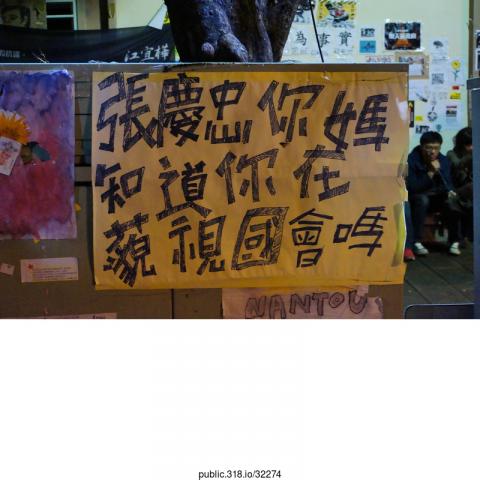 江宜樺
為事實
張慶忠你媽
知道你在
藐視國會嗎
NANTOU
public.318.io/32274